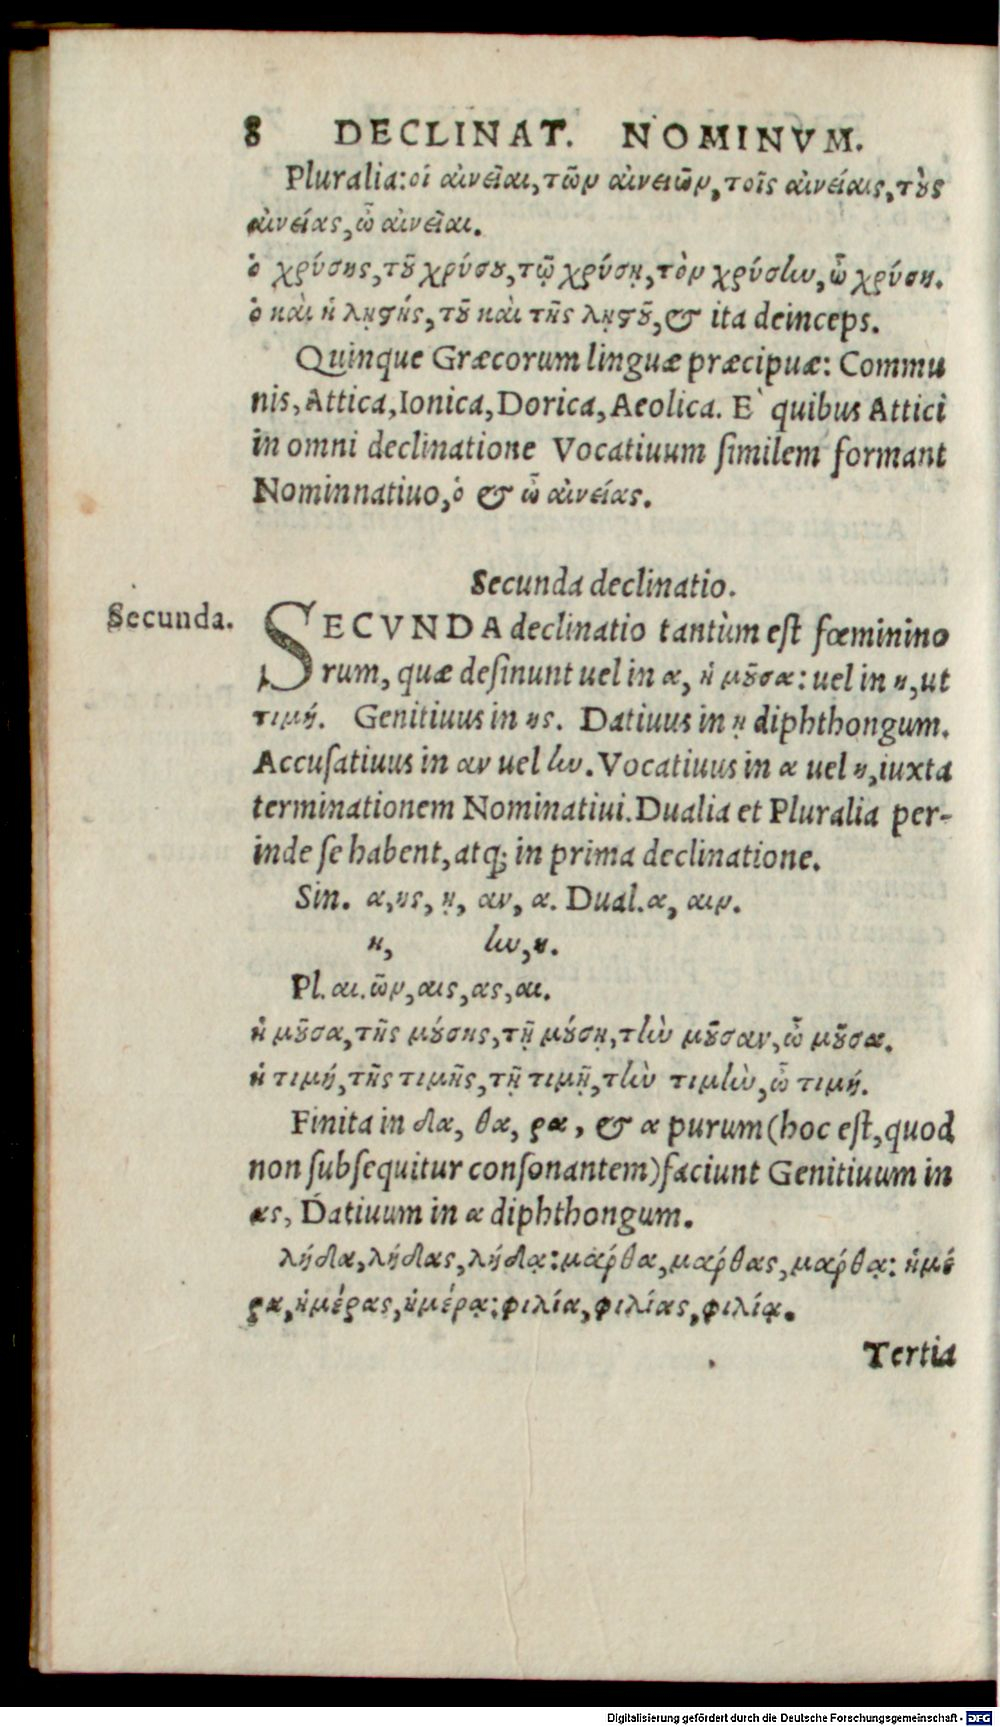 8 DECLINAT. NOMINVM.
Pluralia: οἱ αἰνεῖαι, τῶν αἰνειῶν, τοῖς αἰνείαις, τοὺς
αἰνείας, ὦ αἰνεῖαι.
ὁ χρύσης, τοῦ χρύσου, τῷ χρύσῃ, τὸν χρύσην, ὦ χρύση.
ὁ καὶ ἡ λῃστής, τοῦ καὶ τῆς λῃστοῦ, & ita deinceps.
Quinque Græcorum linguæ præcipuæ: Commu
nis, Attica, Ionica, Dorica, Aeolica. E` quibus Attici
in omni declinatione Vocatiuum ſimilem formant
Nominnatiuo, ὁ & ὦ αἰνείας.
Secunda declinatio.
Secunda.
SECVNDA declinatio tantùm eſt fœminino
rum, quæ deſinunt uel in α, ἡ μοῦσα: uel in η, ut
τιμή. Genitiuus in ης. Datiuus in ῃ diphthongum.
Accuſatiuus in αν uel ην. Vocatiuus in α uel η, iuxta
terminationem Nominatiui. Dualia et Pluralia per-
inde ſe habent, atq; in prima declinatione.
Sin. α, ης, ῃ, αν, α. Dual. α, αιν.
η, ην, η.
Pl. αι. ῶν, αις, ας, αι.
ἡ μοῦσα, τῆς μούσης, τῇ μούσῃ, τὴν μοῦσαν, ὦ μοῦσα.
ἡ τιμή, τῆς τιμῆς, τῇ τιμῇ, τὴν τιμὴν, ὦ τιμή.
Finita in δα, θα, ρα, & α purum (hoc eſt, quod
non ſubſequitur conſonantem) faciunt Genitiuum in
ας, Datiuum in α diphthongum.
λήδα, λήδας, λήδᾳ: μάρθα, μάρθας, μάρθᾳ: ἡμέ
ρα, ἡμέρας, ἡμέρᾳ: φιλία, φιλίας, φιλίᾳ.
Tertia
Digitalisierung gefördert durch die Deutsche Forschungsgemeinschaft - DFG